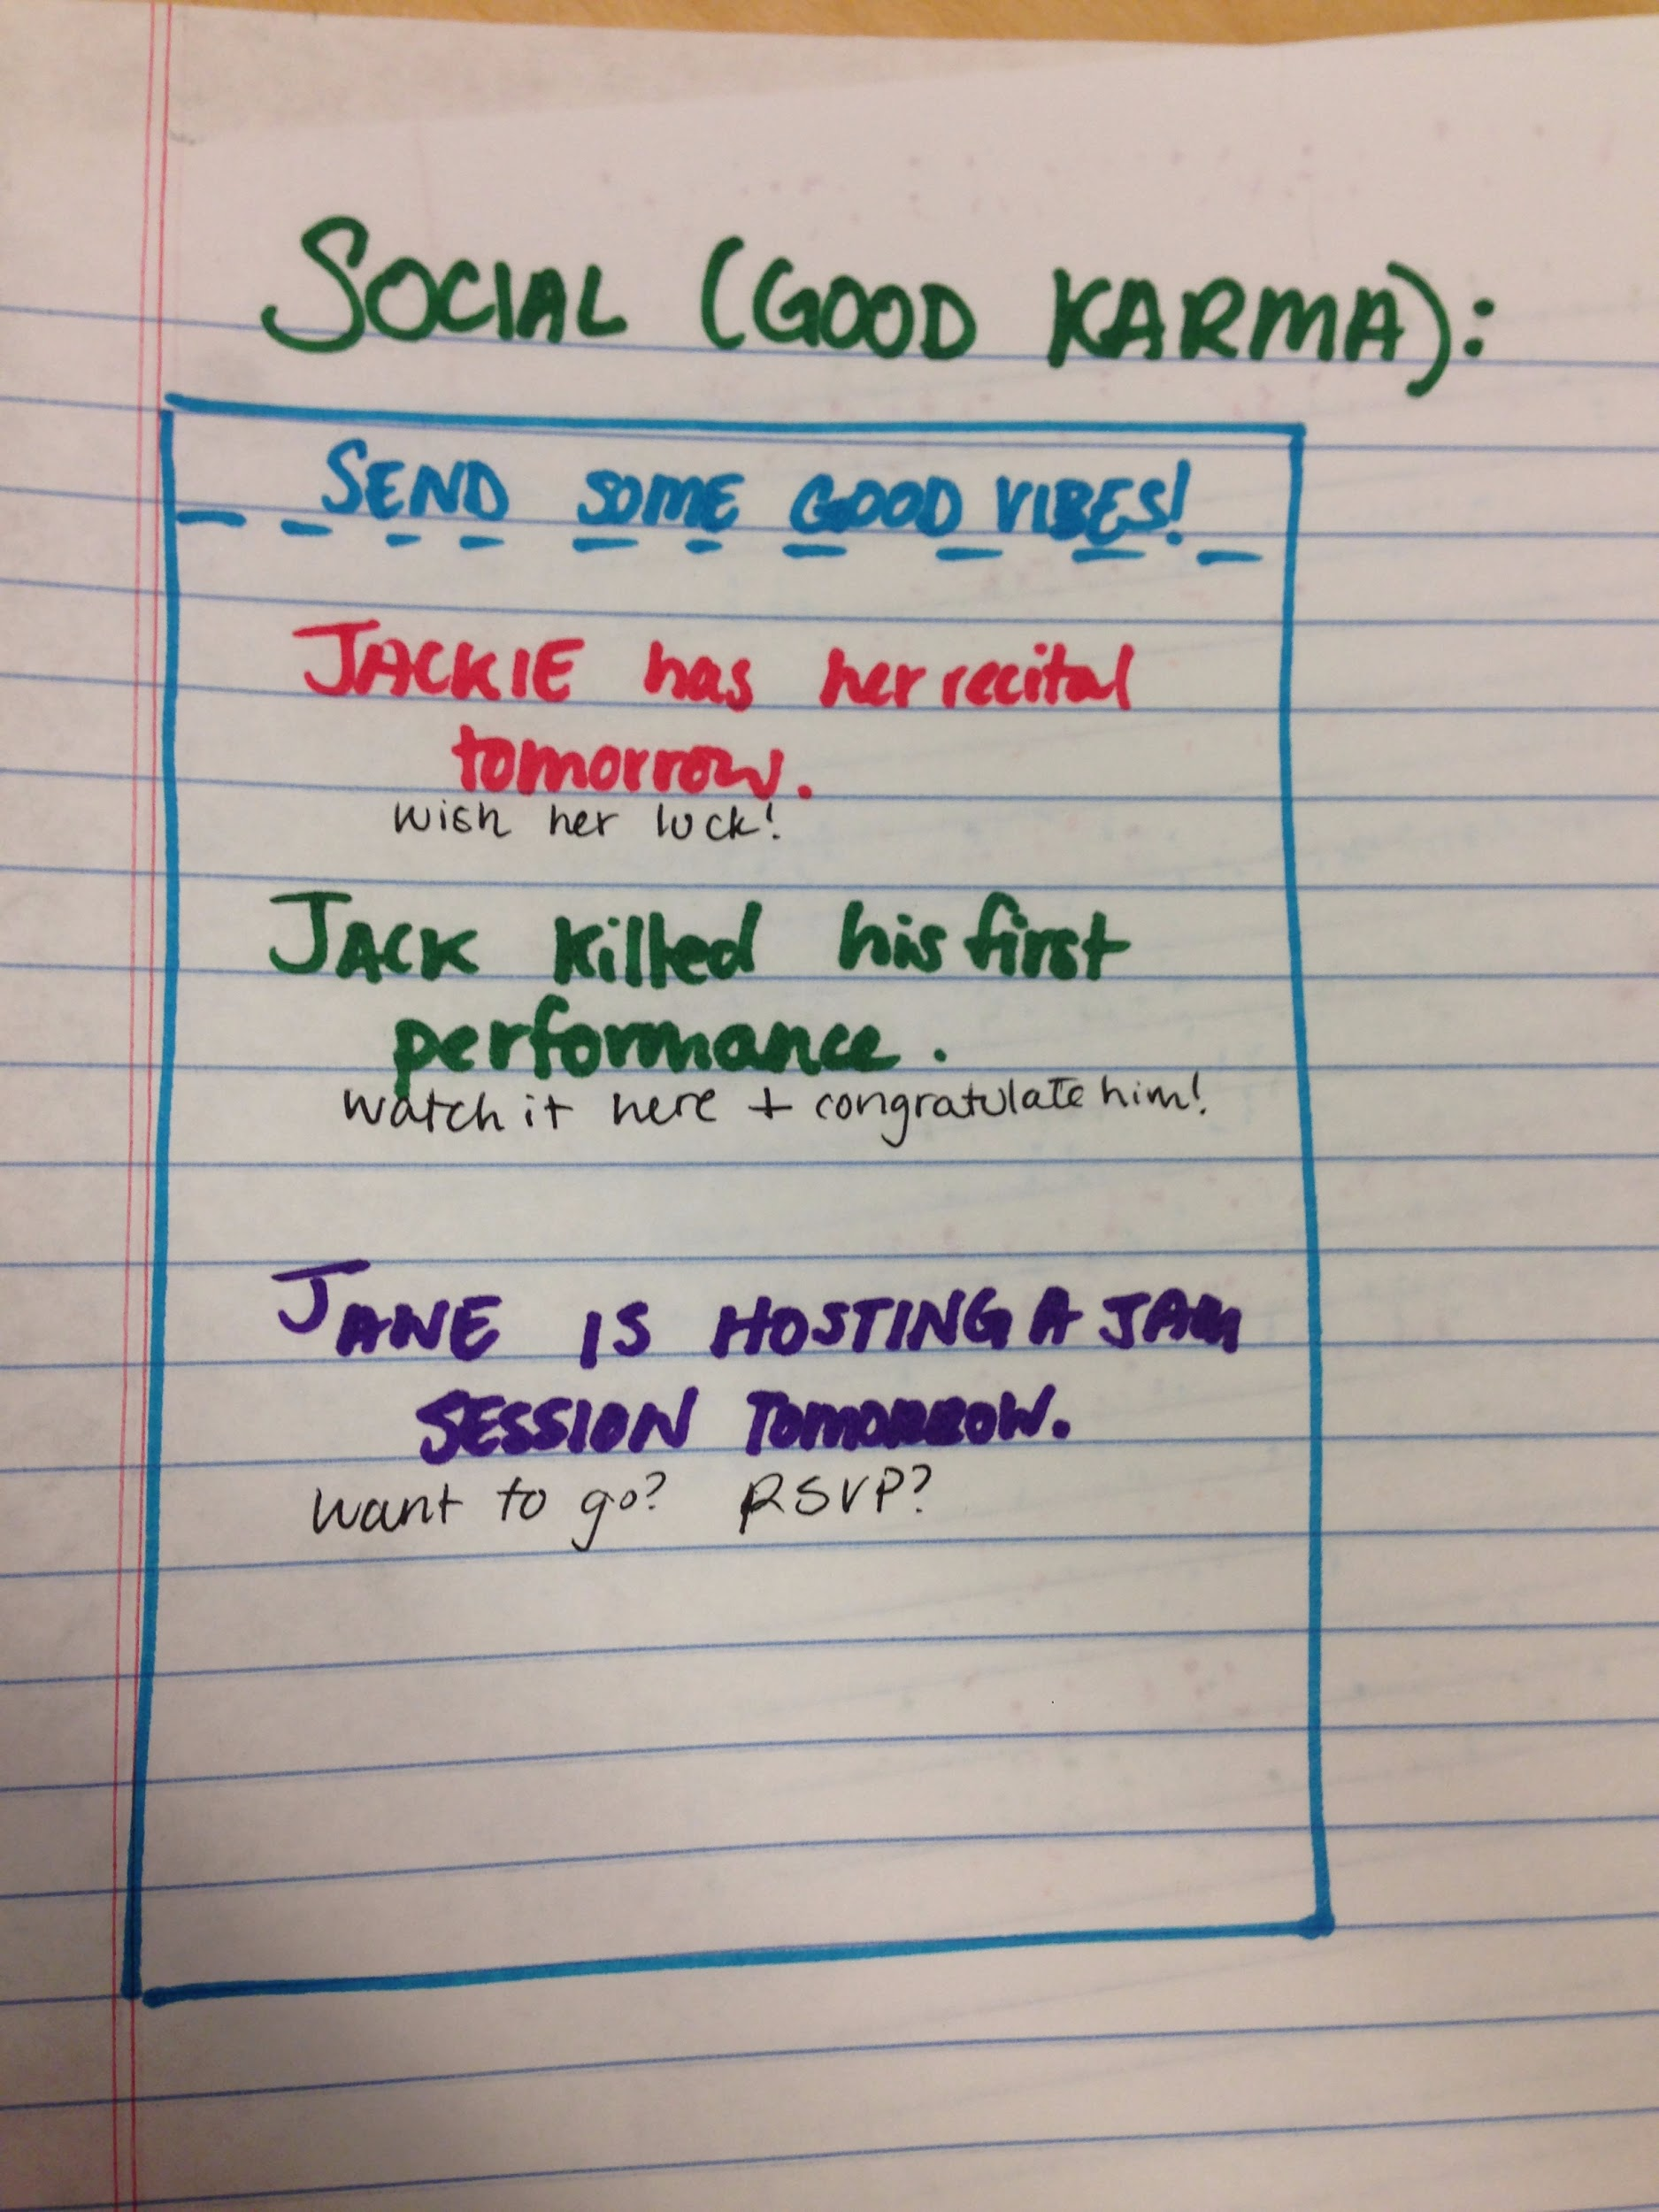 SOCIAL (GOOD KARMA):
SEND SOME GOOD VIBES!
JACKIE has her recital
tomorrow.
wish her luck!
JACK killed his first
performance.
watch it here + congratulate him!
JANE IS HOSTING A JAM
SESSION TOMORROW.
want to go? RSVP?